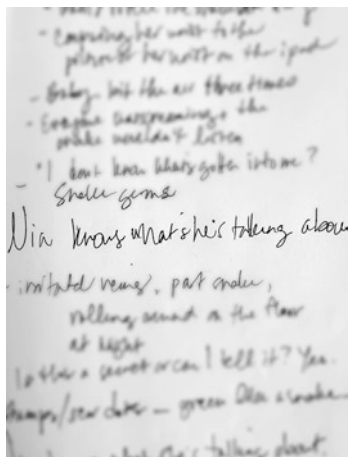 - Comparing her wrist to the
picture of her wrist on the ipad
- Baby bit the air three times
- Everyone was screaming & the
snake wouldn't listen
- "I don't know what's gotten into me?
Snake germs
Nia knows what she's talking about
- irritated veins, part snake,
rolling around on the floor
at night
Is this a secret or can I tell it? Yes.
green like a snake
she's talking about.